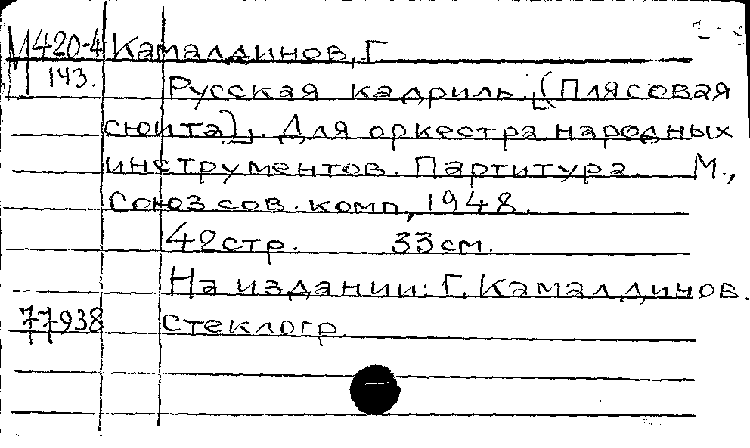 М420-4 Камалдинов, Г
143.
Русская кадриль. [(Плясовая
сюита)]. Для оркестра народных
инструментов. Партитура. М.,
Союз сов. комп, 1948.
42стр. 33см.
На издании: Г. Камалдинов.
77938 Стеклогр.